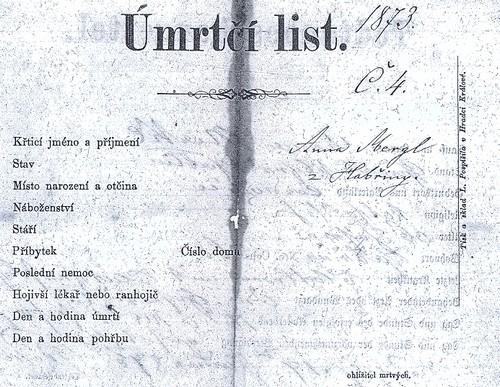 Úmrtčí list.
1873.
Č. 4.
Křticí jméno a příjmení
Anna Mergl
Stav
z Habřiny.
Místo narození a otčina
Náboženství
Stáří
Příbytek Číslo domu
Poslední nemoc
Hojivší lékař nebo ranhojič
Den a hodina úmrtí
Den a hodina pohřbu
ohlížitel mrtvých.
Tisk a sklad L. Pospíšila v Hradci Králové.